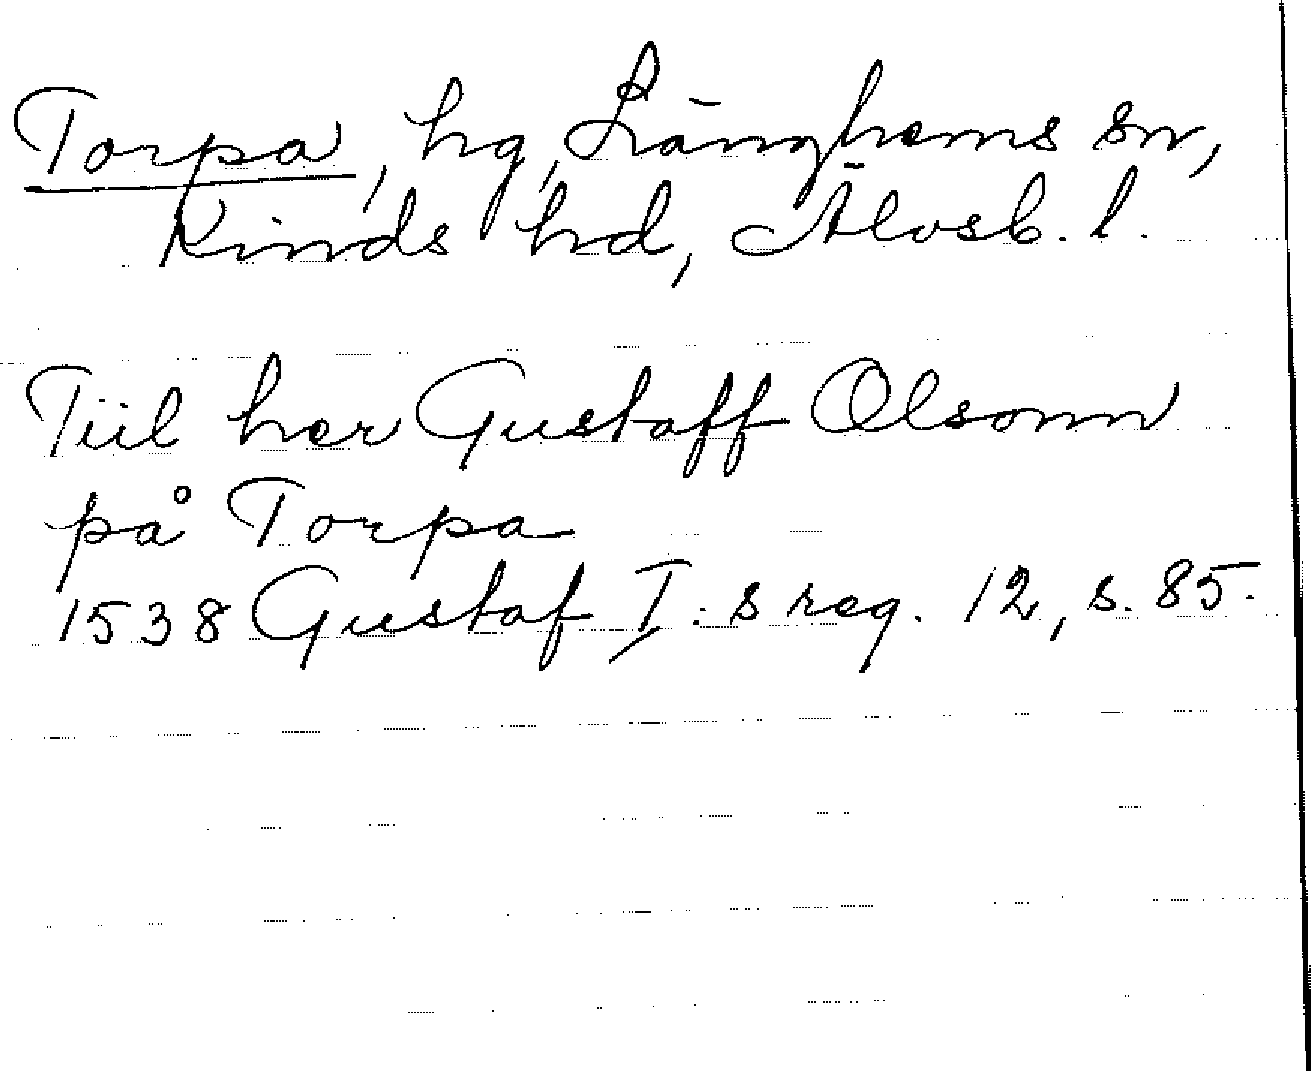 Torpa, hg, Länghems sn,
Kinds hd, Älvsb. l.
Tiil her Gustaff Olsonn
på Torpa
1538 Gustaf I:s reg. 12, s. 85.